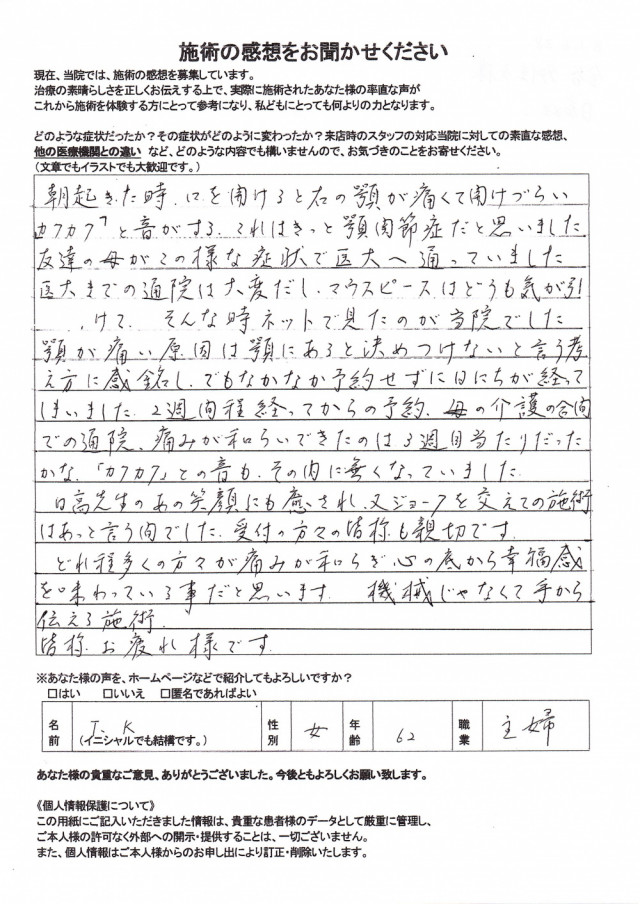 施術の感想をお聞かせください
現在、当院では、施術の感想を募集しています。
治療の素晴らしさを正しくお伝えする上で、実際に施術されたあなた様の率直な声が
これから施術を体験する方にとって参考になり、私どもにとっても何よりの力となります。
どのような症状だったか？その症状がどのように変わったか？来店時のスタッフの対応当院に対しての素直な感想、
他の医療機関との違い など、どのような内容でも構いませんので、お気づきのことをお寄せください。
（文章でもイラストでも大歓迎です。）
朝起きた時、口を開けると右の顎が痛くて開けづらい
カクカク｢と音がする、これはきっと顎関節症だと思いました
友達の母がこの様な症状で医大へ通っていました
医大までの通院は大変だし、マウスピースはどうも気が引
けて、そんな時ネットで見たのが当院でした
顎が痛い原因は顎にあると決めつけないと言う考
え方に感銘し、でもなかなか予約せずに日にちが経って
しまいました、2週間程経ってからの予約、母の介護の合間
での通院、痛みが和らいできたのは3週目当たりだった
かな、「カクカク」との音も、その内に無くなっていました、
日高先生のあの笑顔にも癒され、又ジョークを交えての施術
はあっと言う間でした、受付の方々の皆様も親切です、
どれ程多くの方々が痛みが和らぎ心の底から幸福感
を味わっている事だと思います、機械じゃなくて手から
伝える施術、
皆様、お疲れ様です、
※あなた様の声を、ホームページなどで紹介してもよろしいですか？
□はい □いいえ □匿名であればよい
名前 T. K （イニシャルでも結構です。） 性別 女 年齢 62 職業 主婦
あなた様の貴重なご意見、ありがとうございました。今後ともよろしくお願い致します。
《個人情報保護について》
この用紙にご記入いただきました情報は、貴重な患者様のデータとして厳重に管理し、
ご本人様の許可なく外部への開示・提供することは、一切ございません。
また、個人情報はご本人様からのお申し出により訂正・削除いたします。